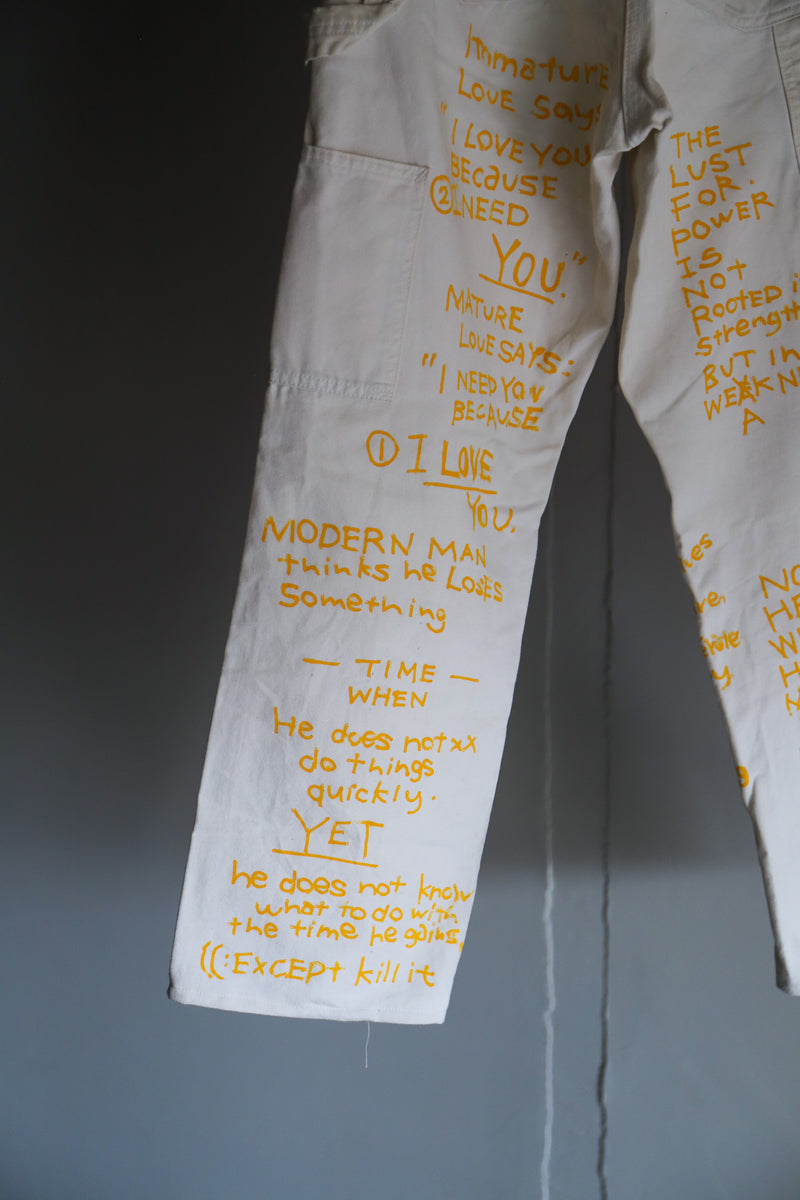 Immature
LOVE Says
"I LOVE YOU
BECAUSE
② I NEED
YOU."
MATURE
LOVE SAYS:
"I NEED YOU
BECAUSE
① I LOVE
YOU.
MODERN MAN
thinks he LOSES
Something
— TIME —
WHEN
He does not xx
do things
quickly.
YET
he does not know
what to do with
the time he gains,
((: EXCEPt kill it
THE
LUST
FOR.
POWER
IS
NOt
ROOTED i
Strength
BUT In
WEAKN
A
NO
HE
W
H